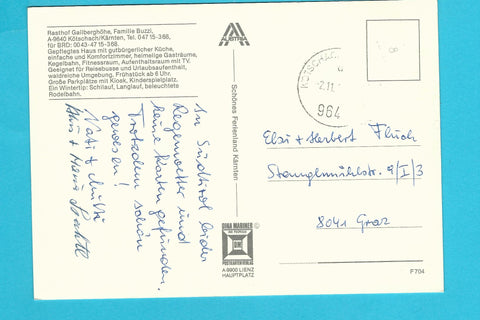 Rasthof Gailberghöhe, Familie Buzzi,
A-9640 Kötschach/Kärnten, Tel. 047 15-368.
für BRD: 0043-47 15-368.
Gepflegtes Haus mit gutbürgerlicher Küche,
einfache und Komfortzimmer, heimelige Gasträume,
Kegelbahn, Fitnessraum, Aufenthaltsraum mit TV.
Geeignet für Reisebusse und Urlaubsaufenthalt,
waldreiche Umgebung, Frühstück ab 6 Uhr.
Große Parkplätze mit Kiosk, Kinderspielplatz.
Ein Wintertip: Schilauf, Langlauf, beleuchtete
Rodelbahn.
In Südtirol leider
Regenwetter und
keine Karten gefunden.
Trotzdem schön
gewesen!
AUSTRIA
Schönes Ferienland Kärnten
DINA MARINER
POSTKARTENVERLAG
A-9900 LIENZ
HAUPTPLATZ
2.11.
964
Elsi + Herbert
Stangelmühlstr. 9/I/3
8041 Graz
F 704